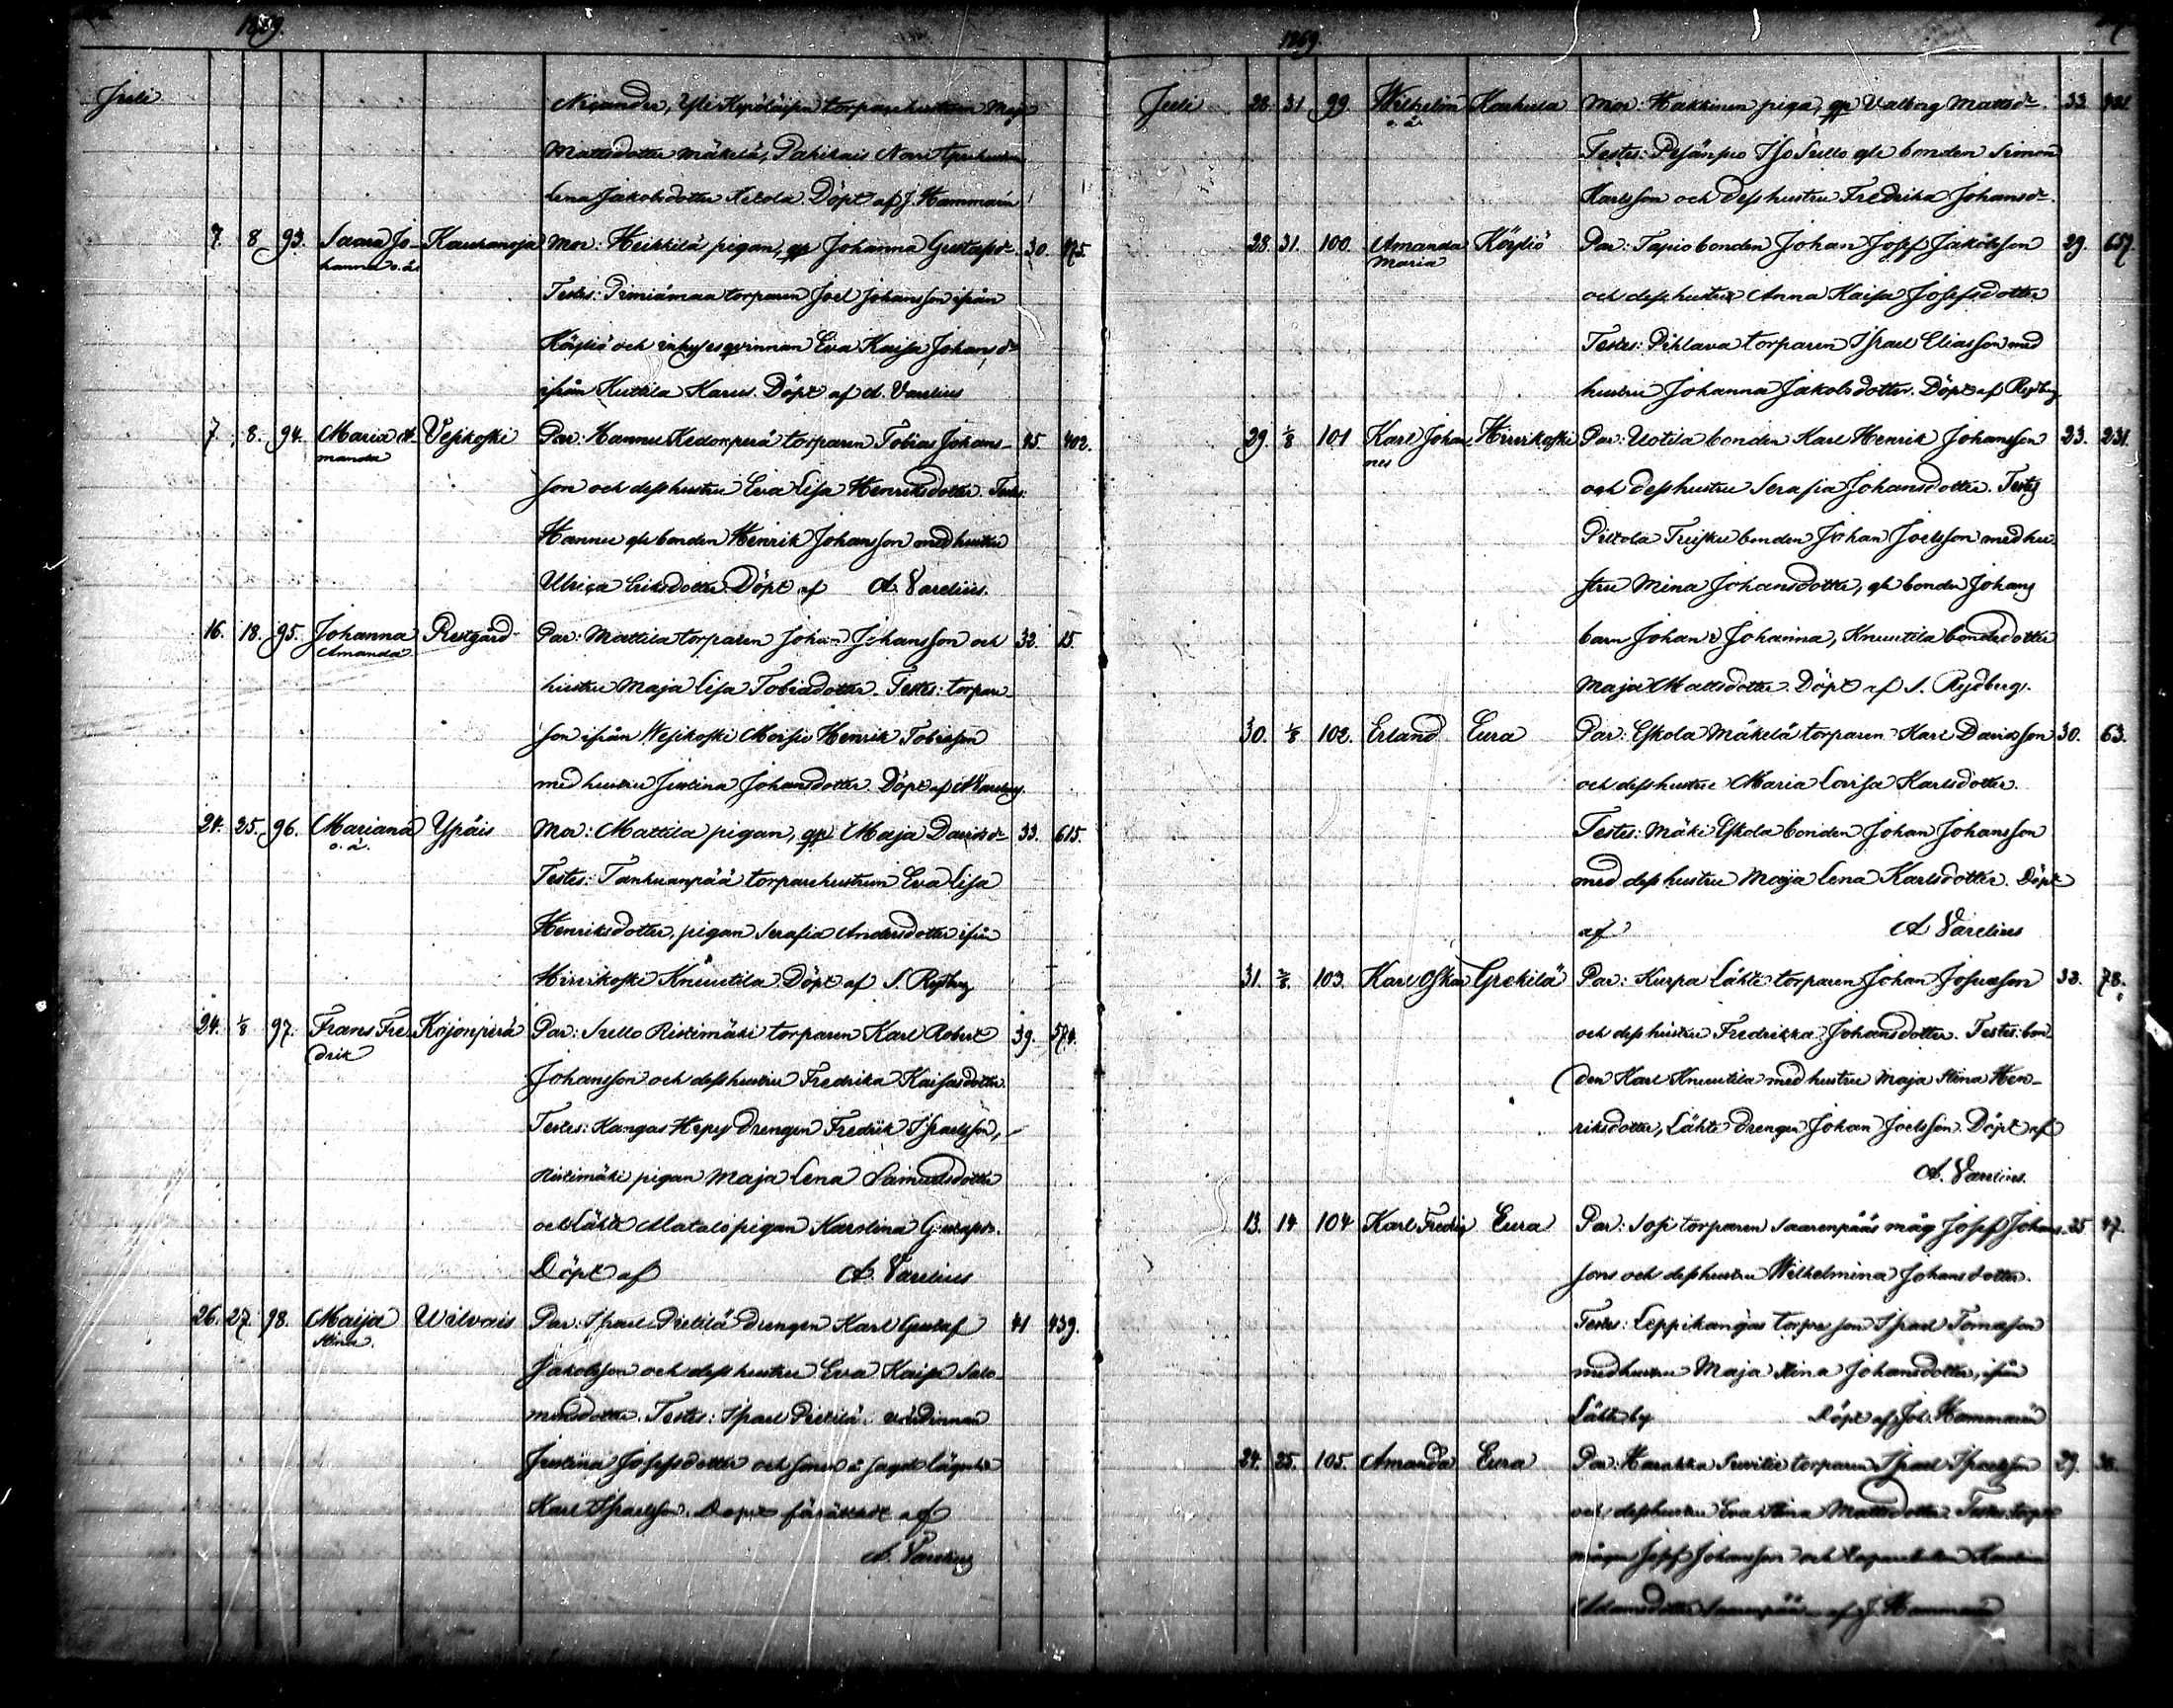 1869.
Juli
Nicander, Yli Kepolaipa torparehustrun Maja
Mattsdotter Mäkelä, Pahikais Nori
Lena Jakobsdotter Ketola. Döpt af J. Hammarin
7. 8. 93. Saara Jo- Kaukanoja Mor: Heikkilä pigan, qp Johanna Gustafsdr. 30. 175.
hanna o. ä.
Testes: Pimiämaa torparen Joel Johansson ifrån
Köyliö och inhysesqvinnan Eva Kaisa Johansdr
ifrån Kuttila Karus. Döpt af A. Varelius
7. 8. 94. Maria A- Vesikoski Par: Hannu Kedonperä torparen Tobias Johans- 45. 402.
manda
son och dess hustru Eva Lisa Henriksdotter. Testes:
Hannu qb bonden Henrik Johansson med hustru
Ulrica Eriksdotter. Döpt af A. Varelius.
16. 18. 95. Johanna Restgård Par: Mattila torparen Johan Johansson och 32. 15.
Amanda
hustru Maja Lisa Tobiadotter. Testes: torpare
son ifrån Vesikoski Moisio Henrik Tobiasson
med hustru Justina Johansdotter. Döpt af A Varelius.
24. 25. 96. Mariana Ypäis Mor: Mattila pigan, qp Maja Davidsdr 33. 615.
o. ä.
Testes: Tanhuanpää torparehustrun Eva Lisa
Henriksdotter, pigan Serafia Andersdotter ifrån
Hirvikoski Knuutila. Döpt af S. Rydberg
24. 1/8 97. Frans Fre- Kojonperä Par: Sullo Ristimäki torparen Karl Robert 39. 574.
drik
Johansson och dess hustru Fredrika Kaisasdotter.
Testes: Kangas Hepus drengen Fredrik Israelsson,
Ristimäki pigan Maja Lena Samuelsdotter
och Lähti Alatalo pigan Karolina Gustafsdr.
Döpt af A. Varelius
26. 27. 98. Maija Wilvais Par: Israel Pietilä drengen Karl Gustaf 41 439.
Stina.
Jakobsson och dess hustru Eva Kaisa Salo-
monsdotter. Testes: Israel Pietilä värdinnan
Justina Josefsdotter och sonen å sagde lägenhet
Karl Israelsson. Dopet förättadt af
A. Varelius
1869.
Juli 28. 31. 99. Wilhelm Karhula Mor: Hakkinen piga, qp Valborg Mattsdr. 33.
o. ä.
Testes: Pesänsuo Iso Sullo qb bonden Simon
Karlsson och dess hustru Fredrika Johansdr.
28. 31. 100. Amanda Köyliö Par: Tapio bonden Johan Josef Jakobsson 29. 657.
Maria
och dess hustru Anna Kaisa Josefsdotter
Testes: Pihlava torparen Israel Eliasson med
hustru Johanna Jakobsdotter. Döpt af Rydberg
29. 1/8 101 Karl Johan- Hirvikoski Par: Uotila bonden Karl Henrik Johansson 23. 231.
nes
och dess hustru Serafia Johansdotter. Testes
Piltola Truisku bonden Johan Joelsson med hu-
stru Mina Johansdotter, qb bonden Johans
barn Johan o Johanna, Knuutila bondedotter
Maja Mattsdotter. Döpt af S. Rydberg.
30. 1/8 102. Erland Eura Par: Eskola Mäkelä torparen Karl Davidsson 30. 63.
och dess hustru Maria Lovisa Karlsdotter.
Testes: Mäki Eskola bonden Johan Johansson
med dess hustru Maja Lena Karlsdotter. Döpt
af A Varelius
31. 2/8. 103. Karl Oskar Gpekilä Par: Kurpa Lähti torparen Johan Josuasson 33. 78.
och dess hustru Fredrikka Johansdotter. Testes: bon-
den Karl Knuutila med hustru Maja Stina Hen-
riksdotter, Lähti drengen Johan Joelsson. Döpt af
A. Varelius.
13. 14 104 Karl Fredrik Eura Par: Sopi torparen Saarenpääs måg Josef Johans- 35 47.
sons och dess hustru Wilhelmina Johansdotter.
Testes: Leppikangas torpareson Israel Tomasson
med hustru Maja Stina Johansdotter, ifrån
Lähti by Döpt af Joh. Hammarin
24. 25. 105. Amanda Eura Par: Harakka Suvitie torparen Israel Israelsson 29. 30.
och dess hustru Eva Stina Mattsdotter. Testes: torpare
mågen Josef Johansson och
Adamsdotter Saarenpää af J. Hammarin